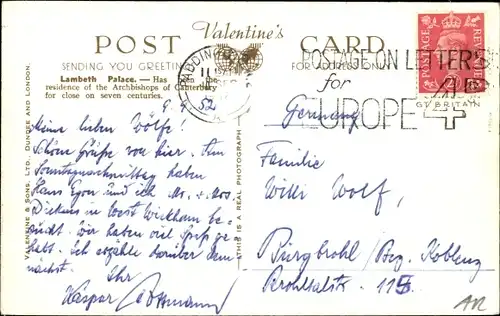 POST Valentine's CARD
SENDING YOU GREETINGS FOR ADDRESS ONLY
Lambeth Palace.— Has been the
residence of the Archbishops of Canterbury
for close on seven centuries.
PADDINGTON
11
52
POSTAGE ON LETTERS
for
EUROPE 4
POSTAGE REVENUE
GT. BRITAIN
VALENTINE & SONS, LTD., DUNDEE AND LONDON.
THIS IS A REAL PHOTOGRAPH
Meine lieben Wölfe.
Schöne Grüße von hier. Am
Sonntagnachmittag haben
Hans Egon und ich Mr. + Mrs.
Dickins in West Wickham be-
sucht. Wir haben viel Spaß ge-
habt. Ich erzähle darüber dem-
nächst.
Ihr
Kaspar
Germany
Familie
Willi Wolf,
Burgbrohl / Bez. Koblenz
Brohltalstr. 115